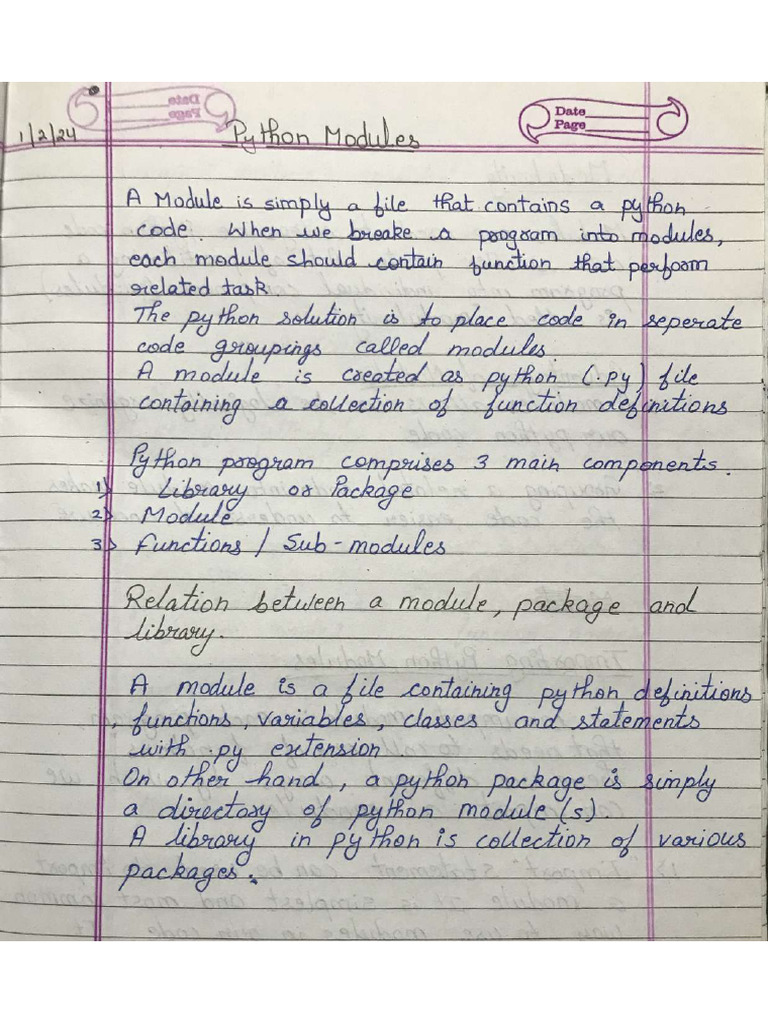 Date
Page
1/2/24
Python Modules
A Module is simply a file that contains a python
code. When we breake a program into modules,
each module should contain function that perform
related task
The python solution is to place code in seperate
code groupings called modules.
A module is created as python (.py) file
containing a collection of function definitions
Python program comprises 3 main components.
1) Library or Package
2) Module
3) Functions / Sub-modules
Relation between a module, package and
library.
A module is a file containing python definitions
, functions, variables, classes and statements
with .py extension
On other hand, a python package is simply
a directory of python module(s).
A library in python is collection of various
packages.